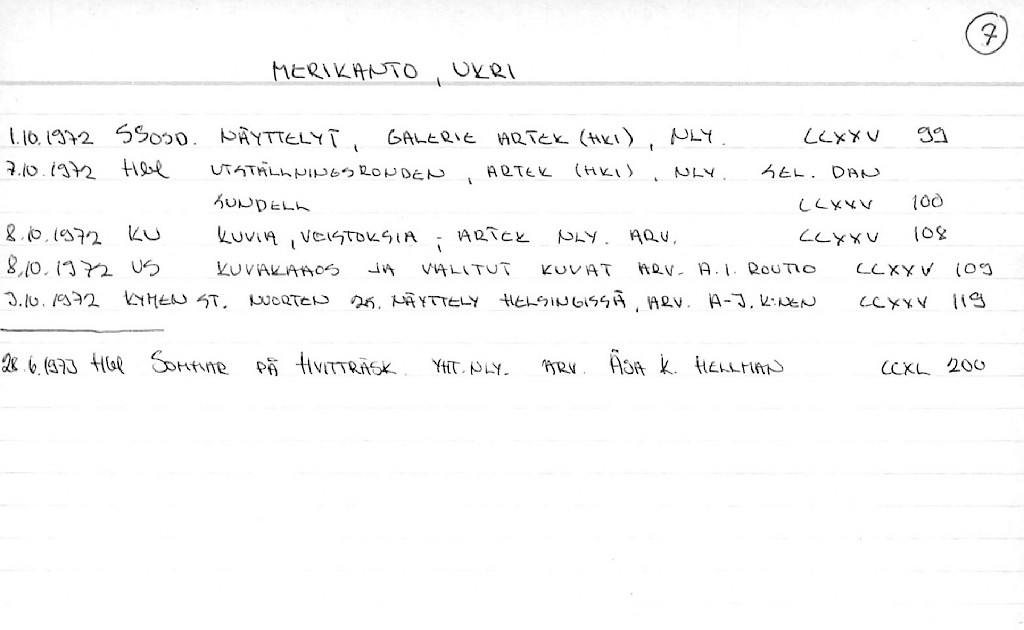 7
MERIKANTO, UKRI
1.10.1972 SSOSD. NÄYTTELYT, GALERIE ARTEK (HKI), NLY. CCXXV 99
7.10.1972 Hbl UTSTÄLLNINGSRONDEN, ARTEK (HKI), NLY. SEL. DAN
SUNDELL CCXXV 100
8.10.1972 KU KUVIA, VEISTOKSIA; ARTEK NLY. ARV. CCXXV 108
8.10.1972 US KUVAKAAOS JA VALITUT KUVAT ARV. A.I. ROUTIO CCXXV 109
3.10.1972 KYMEN ST. NUORTEN 25. NÄYTTELY HELSINGISSÄ, ARV. A-J. K:NEN CCXXV 119
28.6.1973 Hbl SOMMAR PÅ HVITTRÄSK. YHT.NLY. ARV. ÅSA K. HELLMAN CCXL 200